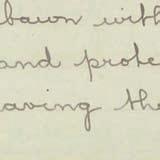 bawn with
and prote
aving the